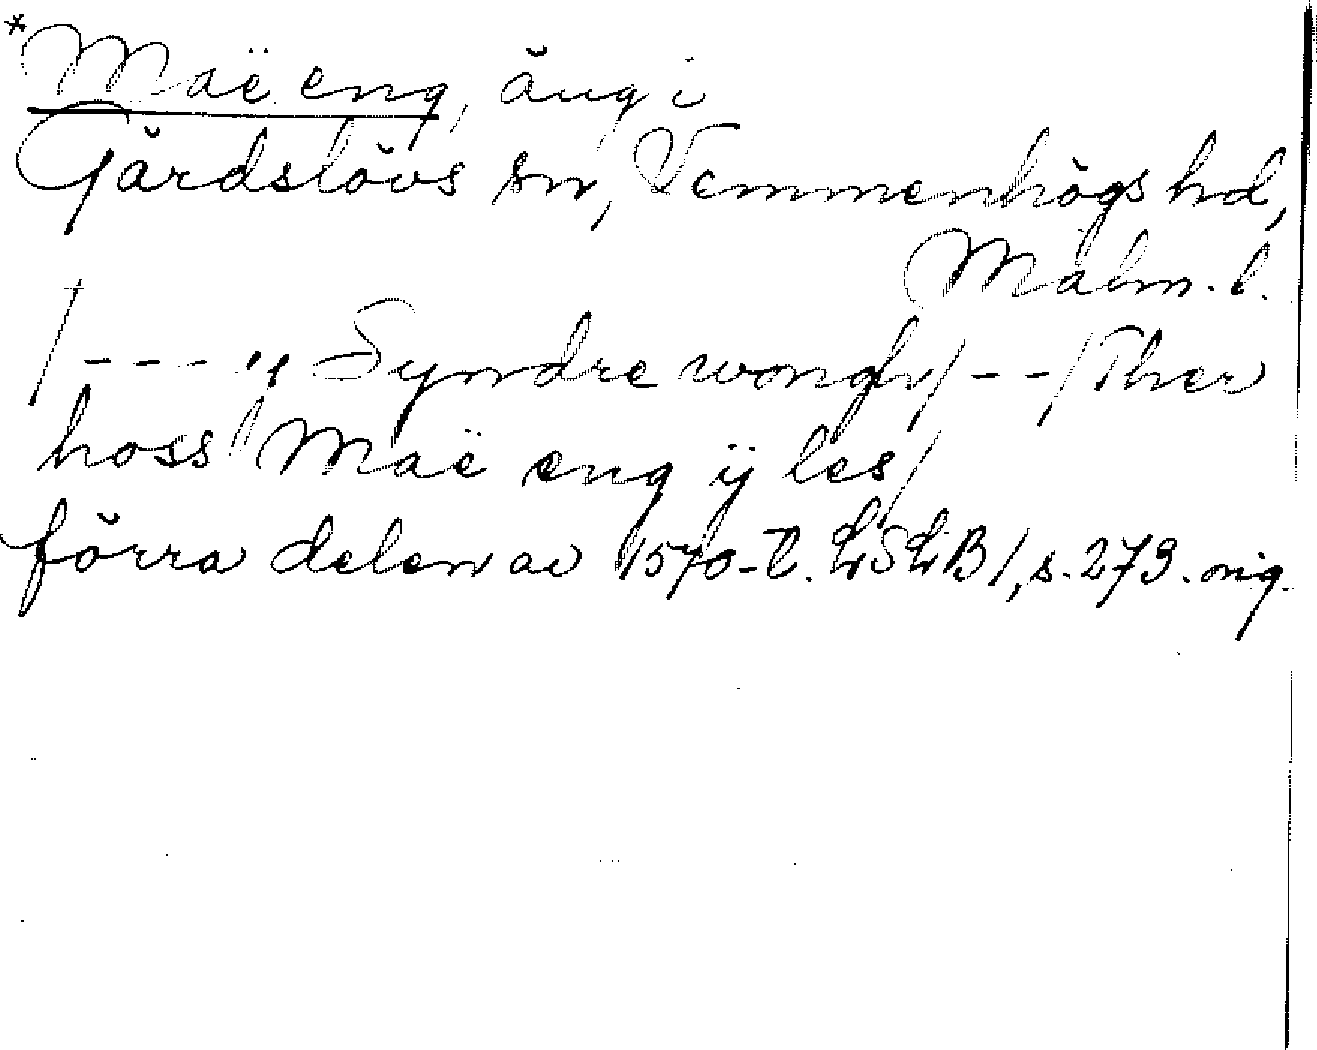 *Maë eng, äng i
Gärdslövs sn, Vemmenhögs hd,
Malm. l.
/--- „ Syndre wongh/--/Ther
hoss" Maë eng ij les/
förra delen av 1570-t. LSLB1, s. 273. orig.